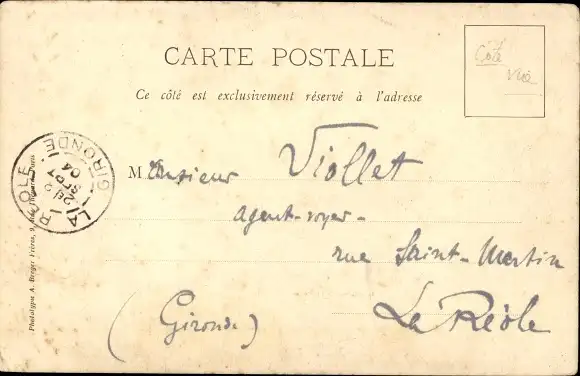 CARTE POSTALE
Ce côté est exclusivement réservé à l'adresse
Côté
vue
Monsieur Viollet
agent-voyer-
rue Saint-Martin
La Réole
(Gironde)
LA RÉOLE GIRONDE
2
SEPT
04
Phototypie A. Berger Frères, 9, Rue Thénard, Paris